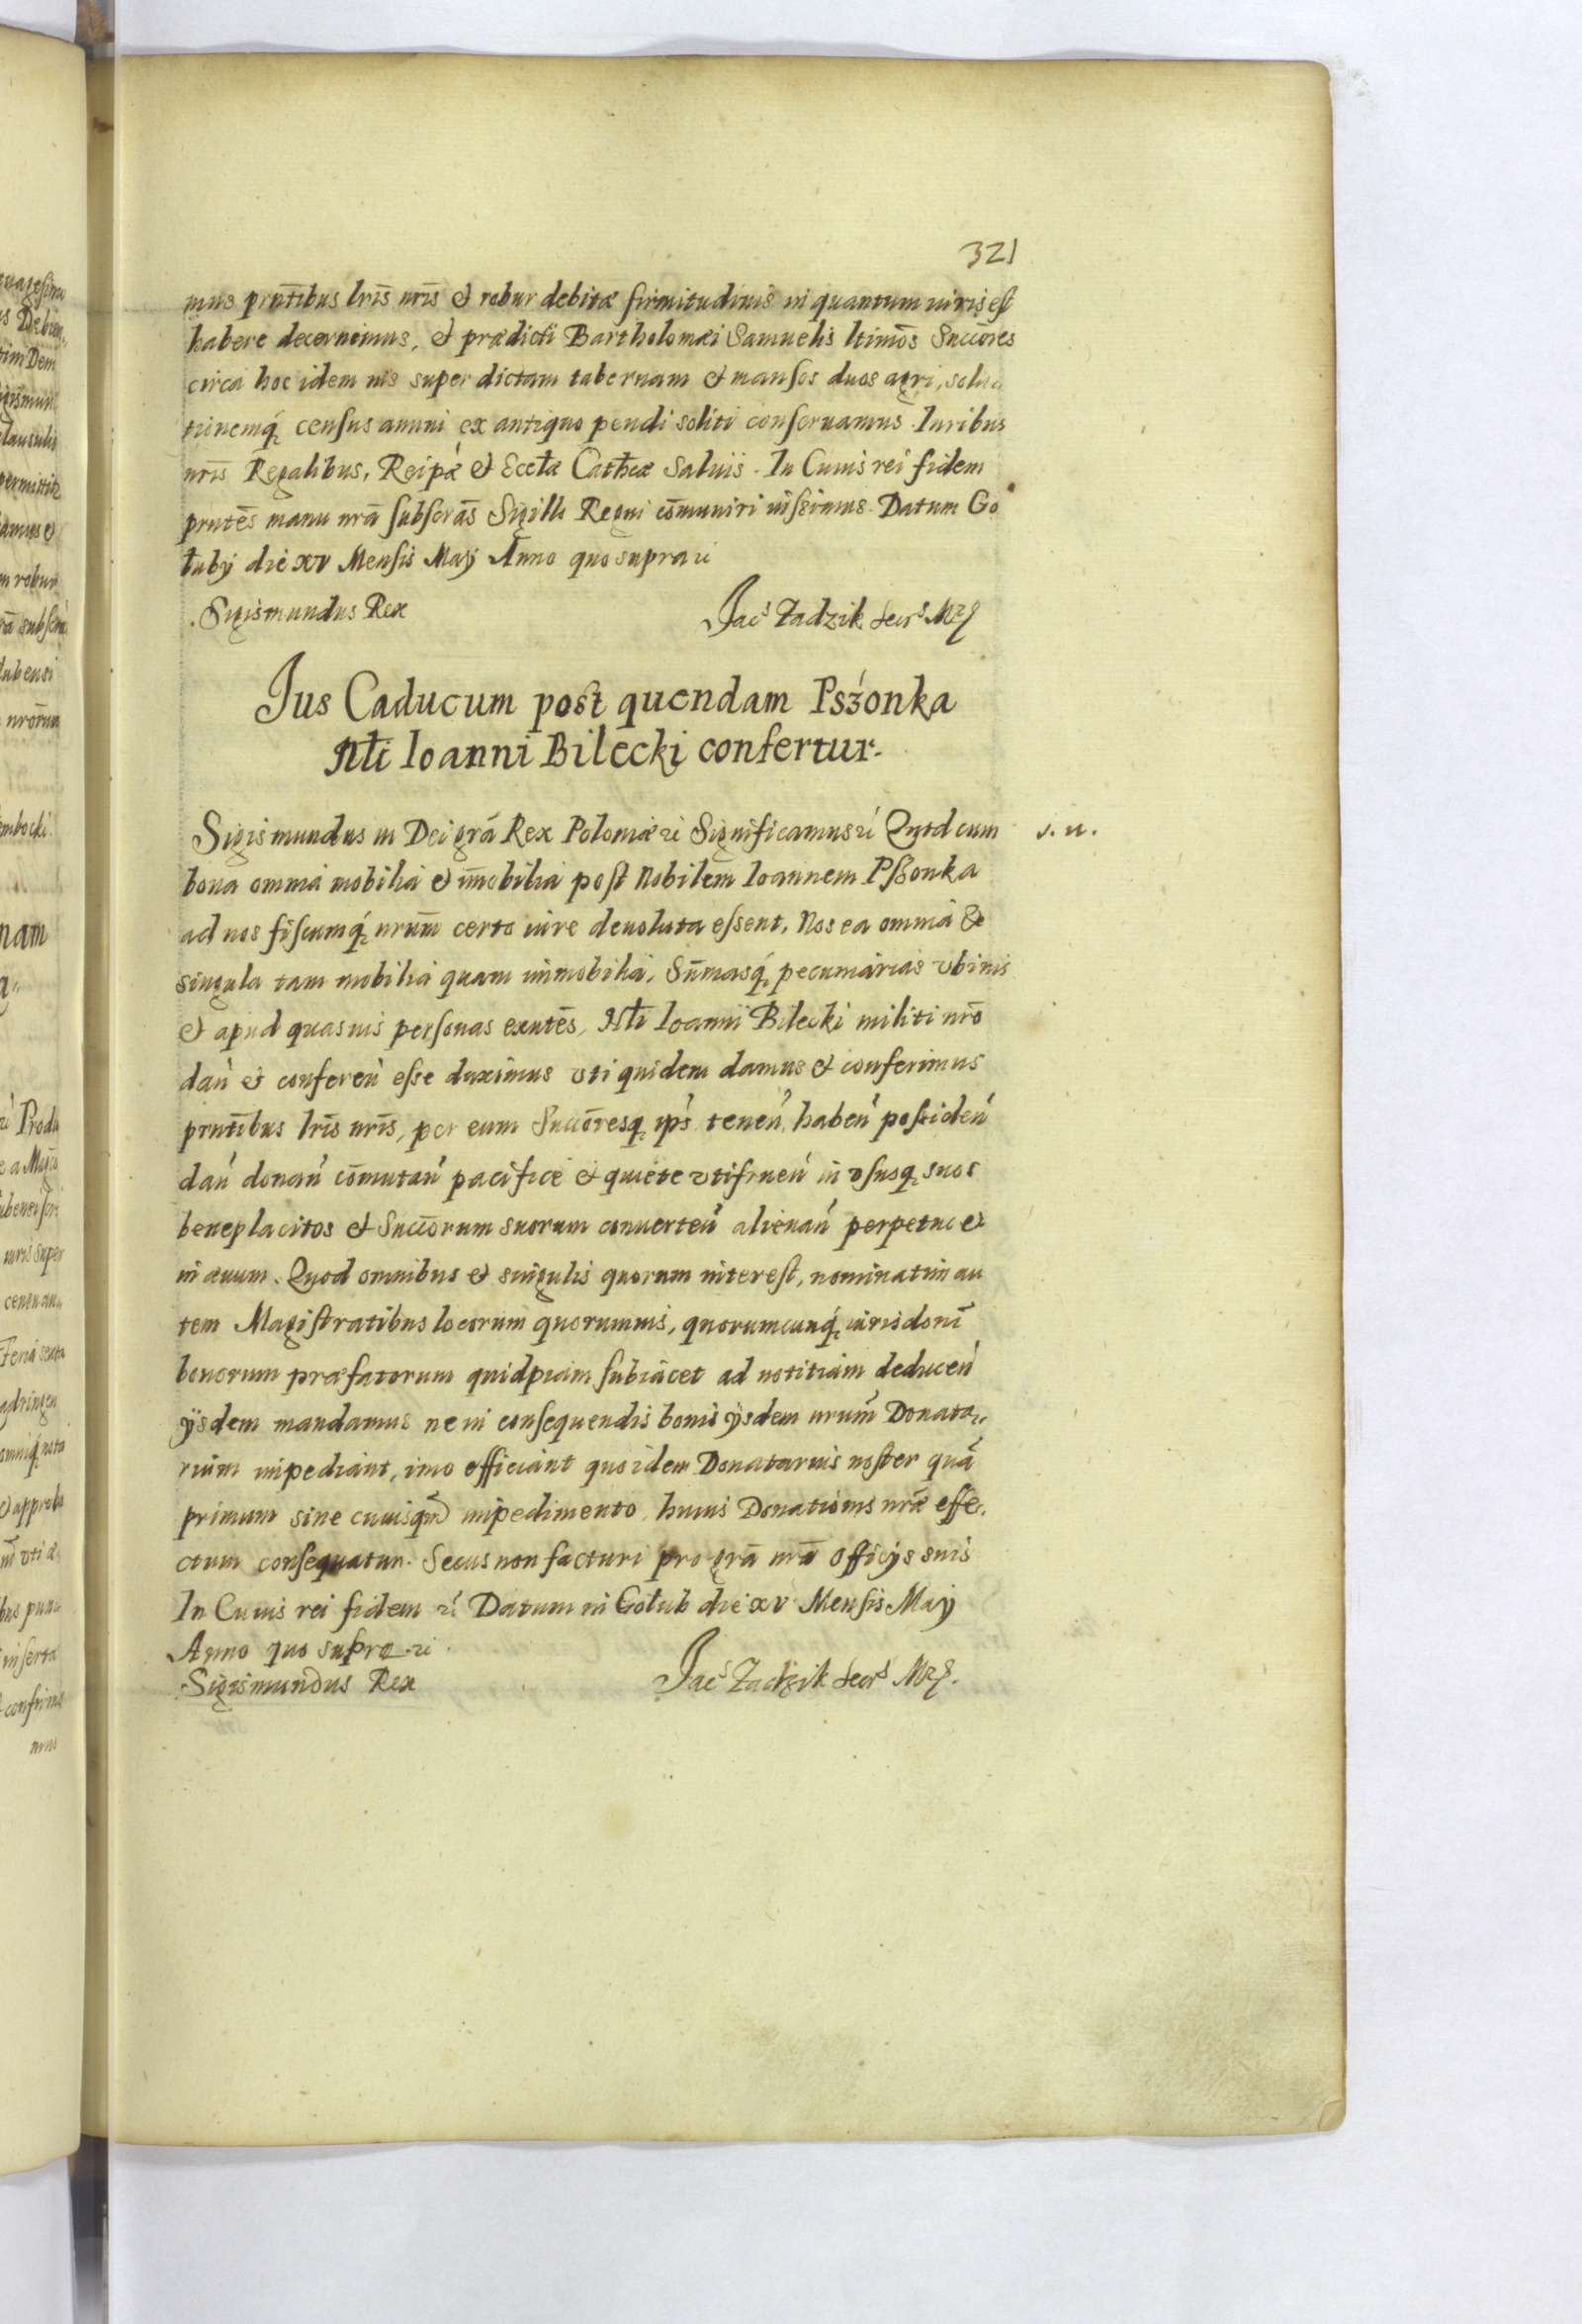 321
mus prntibus lris nris et robur debitæ firmitudinis in quantum iuris est
habere decernimus, et prædicti Bartholomæi Samuelis ltimos Succores
circa hoc idem ius super dictam tabernam et mansos duos agri, solu
tionemq, census annui ex antiquo pendi soliti conseruamus. Iuribus
nris Regalibus, Reipæ et Eccłæ Cathcæ saluis. In Cuius rei fidem
prntes manu nrā subscras Sigillo Regni cōmuniri iussimus. Datum Go
łuby die xv Mensis Maÿ Anno quo supra ꝛc
Sigismundus Rex
Jacs Zadzik Secrs Mrs
Jus Caducum post quendam Pszonka
Nłi Ioanni Bilecki confertur.
Sigismundus III Dei grā Rex Poloniæ ꝛc Significamus ꝛc Qutd cum
s. n.
bona omnia mobilia et im̄obilia post Nobilem Ioannem Pszonka
ad nos fiscumq, nrum certo iure deuoluta essent, Nos ea omnia &
singula tam mobilia quam immobilia, Sum̄asq, pecuniarias vbiuis
et apud quasuis personas exntes, Nłi Ioanni Bilecki militi nrō
dan et conferen esse duximus vti quidem damus et conferimus
prntibus lris nris, per eum Succoresq, ips tenen, haben possiden
dan donan cōmutan pacifice et quiete vtifruen in vsusq, suos
beneplacitos et Succorum suorum conuerten alienan perpetuo et
in æuum. Quod omnibus et singulis quorum interest, nominatim au
tem Magistratibus locorum quorumuis, quorumcunq, iurisdoni
bonorum præfatorum quidpiam subiacet ad notitiam deducen
ÿsdem mandamus ne in consequendis bonis ÿsdem nrum Donata„
rium impediant, imo efficiant quo idem Donatarius noster quā
primum sine cuiusqm impedimento huius Donationis nræ effe„
ctum consequatur. Secus non facturi pro grā nrā officÿs suis
In Cuius rei fidem ꝛc Datum in Gołub die xv Mensis Maÿ
Anno quo supra ꝛc
Sigismundus Rex
Jacs Zadzik Secrs Mrs.